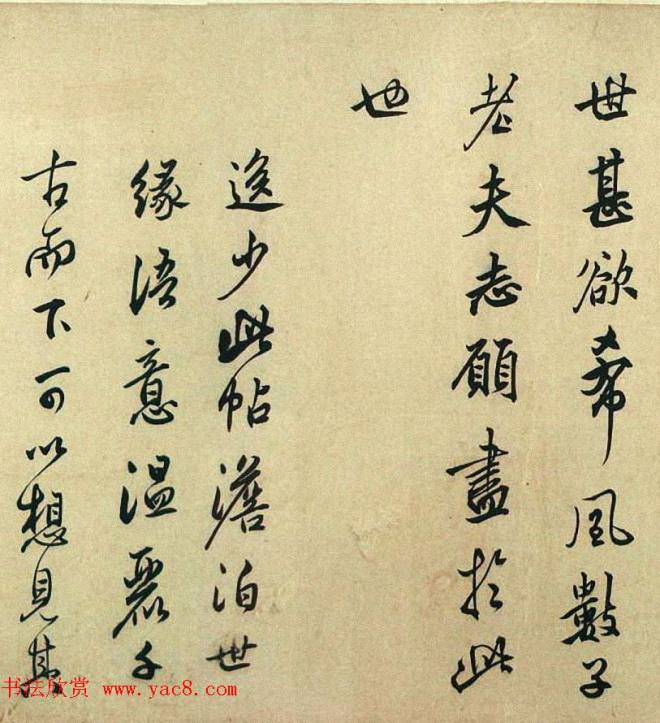 世甚欲希風數子
老夫志願盡於此
也
逸少此帖澹泊世
緣語意温麗千
古而下可以想見其
书法欣赏 www.yac8.com